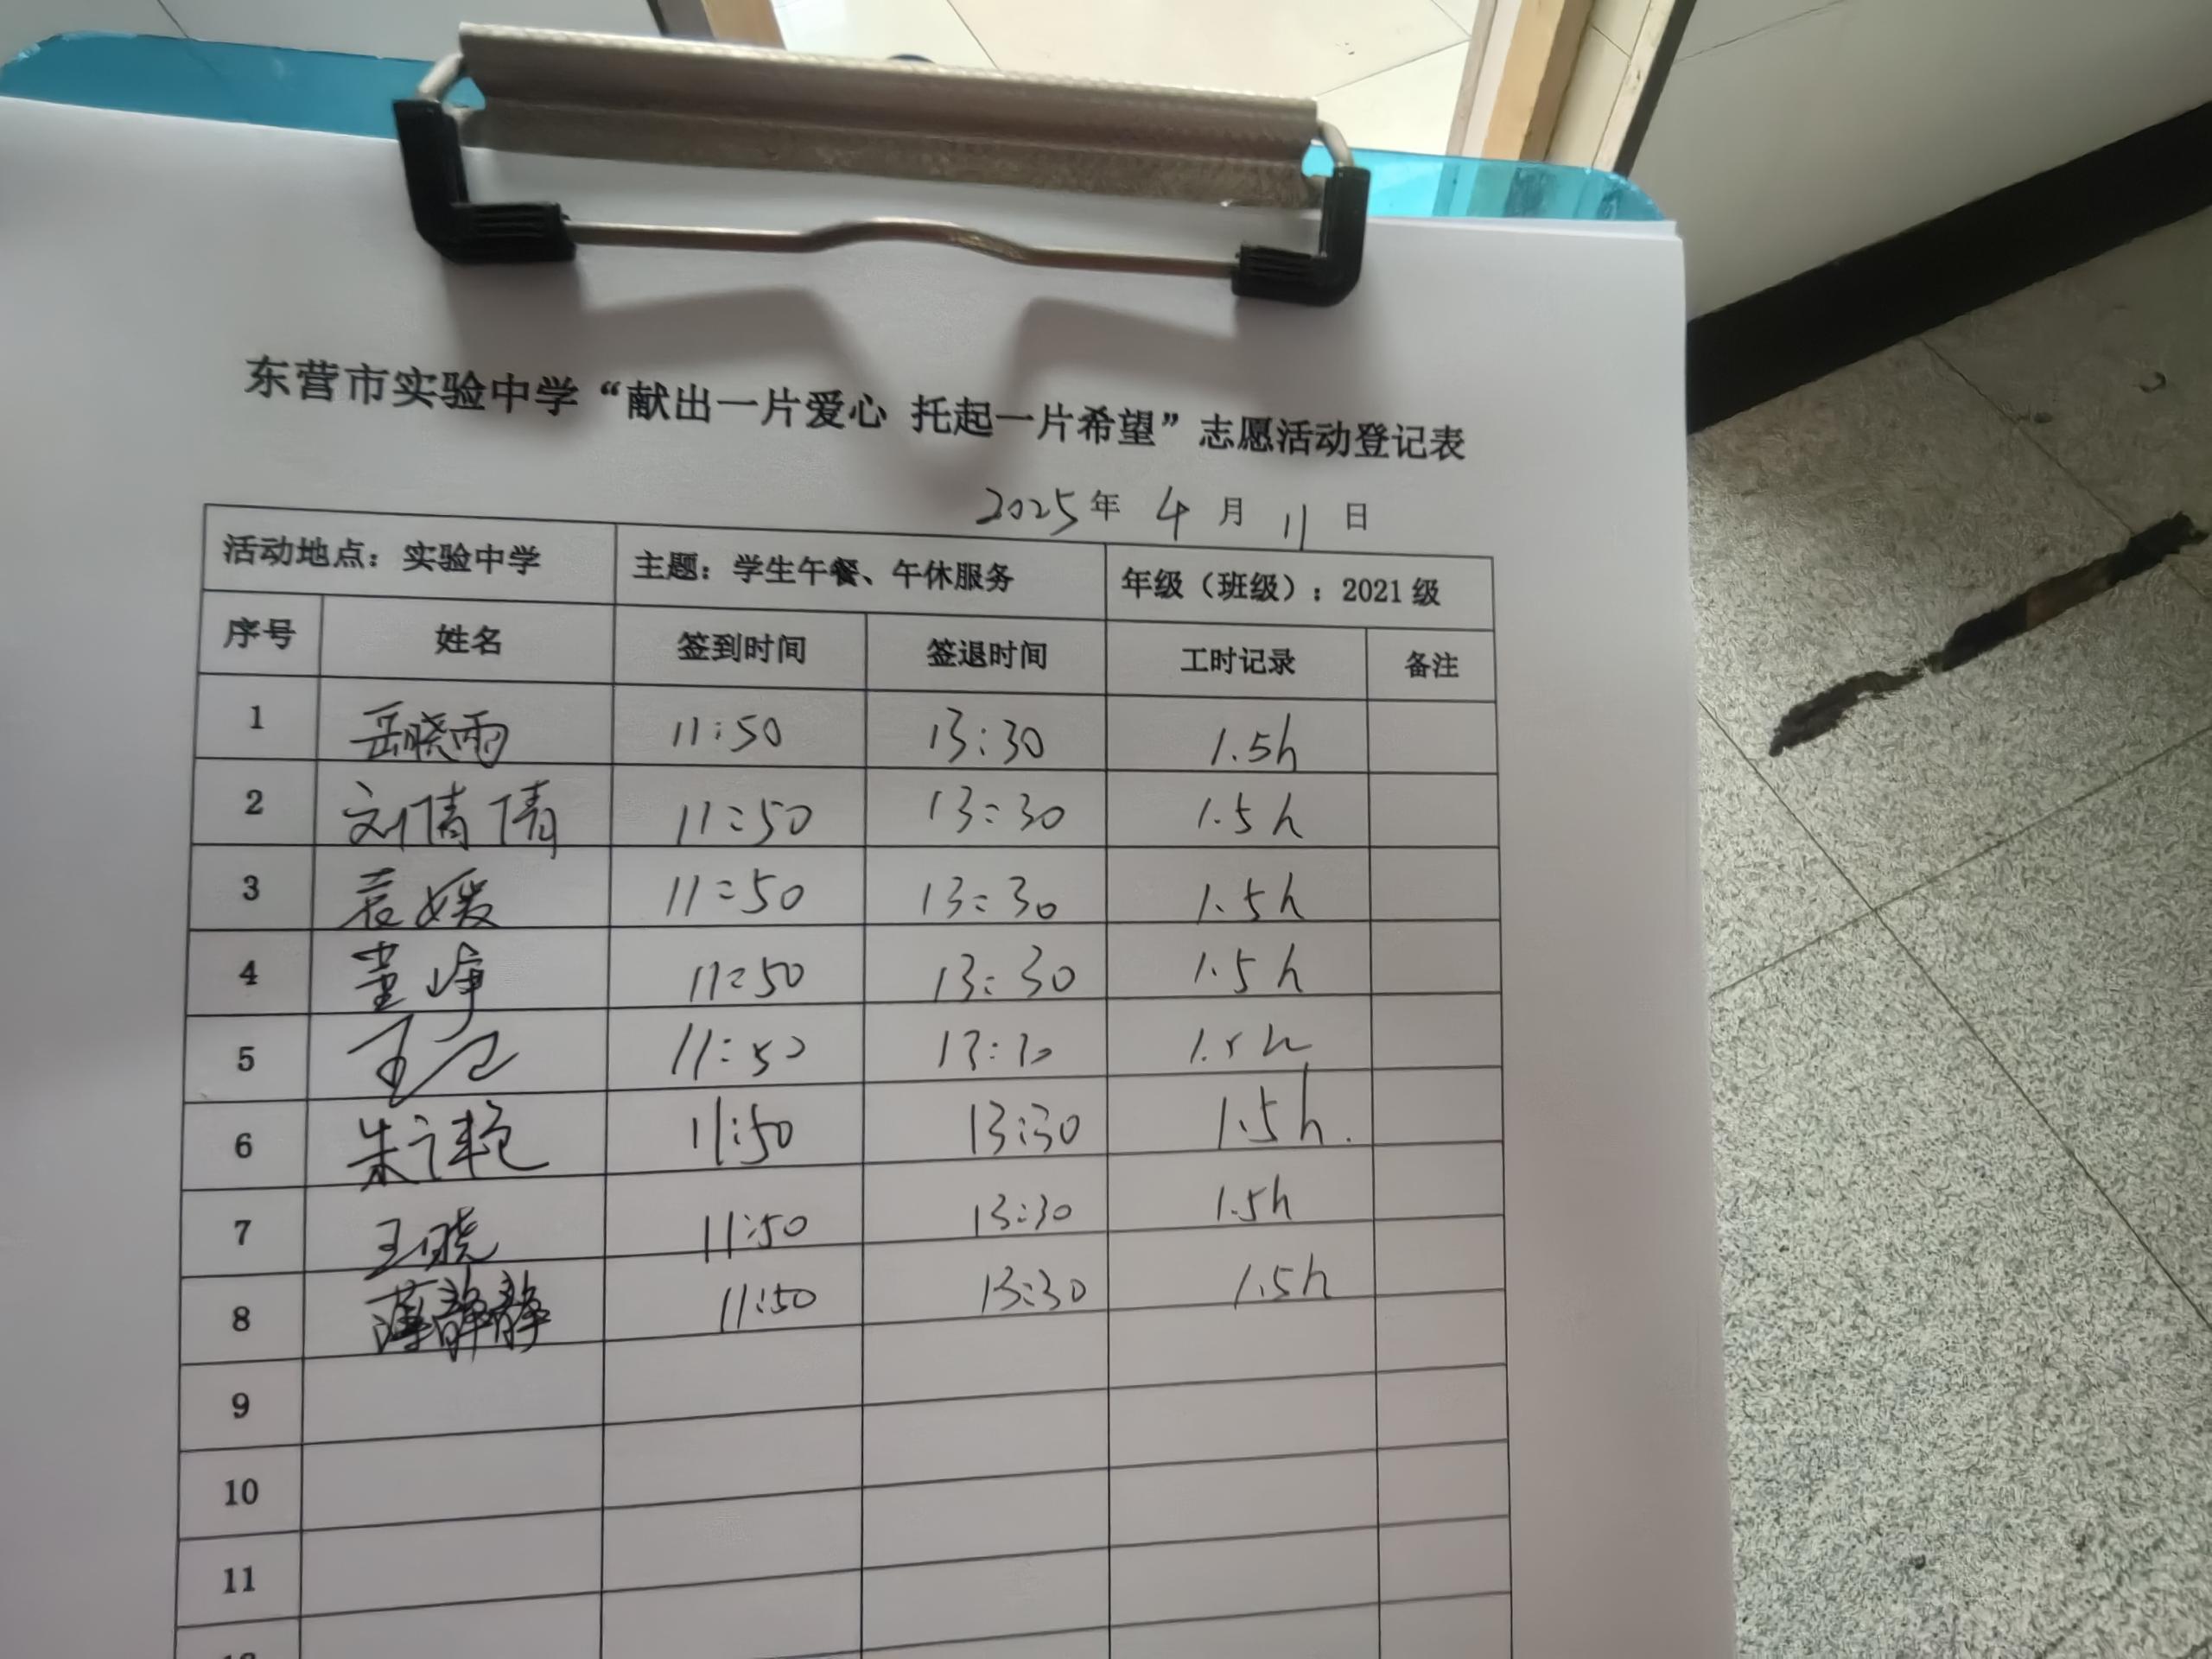 东营市实验中学“献出一片爱心 托起一片希望”志愿活动登记表
2025年 4 月 11 日
活动地点：实验中学 主题：学生午餐、午休服务 年级（班级）：2021级
序号 姓名 签到时间 签退时间 工时记录 备注
1 岳晓雨 11:50 13:30 1.5h
2 刘倩倩 11:50 13:30 1.5h
3 袁媛 11:50 13:30 1.5h
4 董峥 11:50 13:30 1.5h
5 王 11:50 13:30 1.5h
6 朱 11:50 13:30 1.5h.
7 王晓 11:50 13:30 1.5h
8 薄静静 11:50 13:30 1.5h
9
10
11